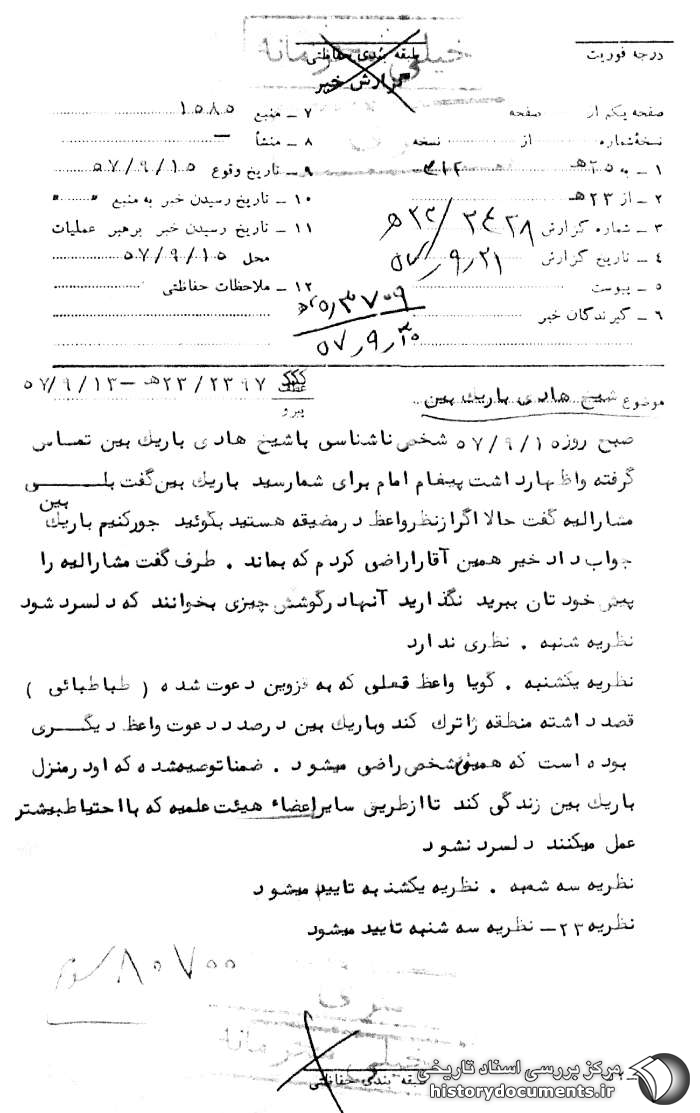 خیلی محرمانه
درجه فوریت
طبقه بندی حفاظتی
گزارش خبر
صفحه یکم از صفحه
نسخه شماره از نسخه
۱ – به ۲۵۰ هـ ۳۱۲
۲ – از ۲۳ هـ
۳ – شماره گزارش ۲۳/۲۴۲۸ هـ
۴ – تاریخ گزارش ۵۷/۹/۲۱
۵ – پیوست
۶ – گیرندگان خبر
۷ – منبع ۱۵۸۵
۸ – منشأ –
۹ – تاریخ وقوع ۵۷/۹/۱۵
۱۰ – تاریخ رسیدن خبر به منبع " "
۱۱ – تاریخ رسیدن خبر برهبر عملیات
محل ۵۷/۹/۱۵
۱۲ – ملاحظات حفاظتی
۵۷/۹/۳۰
موضوع شیخ هادی باریک بین
عطف ۲۳/۲۳۹۷ هـ – ۵۷/۹/۱۳
پیرو
صبح روز ۵۷/۹/۱۵ شخص ناشناسی با شیخ هادی باریک بین تماس
گرفته و اظهار داشت پیغام امام برای شما رسید باریک بین گفت بلی
مشارالیه گفت حالا اگر از نظر واعظ در مضیقه هستید بگوئید جور کنیم باریک بین
جواب داد خیر همین آقا را راضی کردم که بماند . طرف گفت مشارالیه را
پیش خودتان ببرید نگذارید آنها در گوشش چیزی بخوانند که دلسرد شود
نظریه شنبه . نظری ندارد
نظریه یکشنبه . گویا واعظ قعلی که به قزوین دعوت شده ( طباطبائی )
قصد داشته منطقه را ترک کند و باریک بین در صدد دعوت واعظ دیگری
بوده است که همین شخص راضی میشود . ضمنا توصیه شده که او در منزل
باریک بین زندگی کند تا از طریق سایر اعضاء هیئت علمیه که با احتیاط بیشتر
عمل میکنند دلسرد نشود
نظریه سه شنبه . نظریه یکشنبه تایید میشود
نظریه ۲۳ – نظریه سه شنبه تایید میشود
۸۰۷۰۰
سری
خیلی محرمانه
طبقه بندی حفاظتی
مرکز بررسی اسناد تاریخی
historydocuments.ir